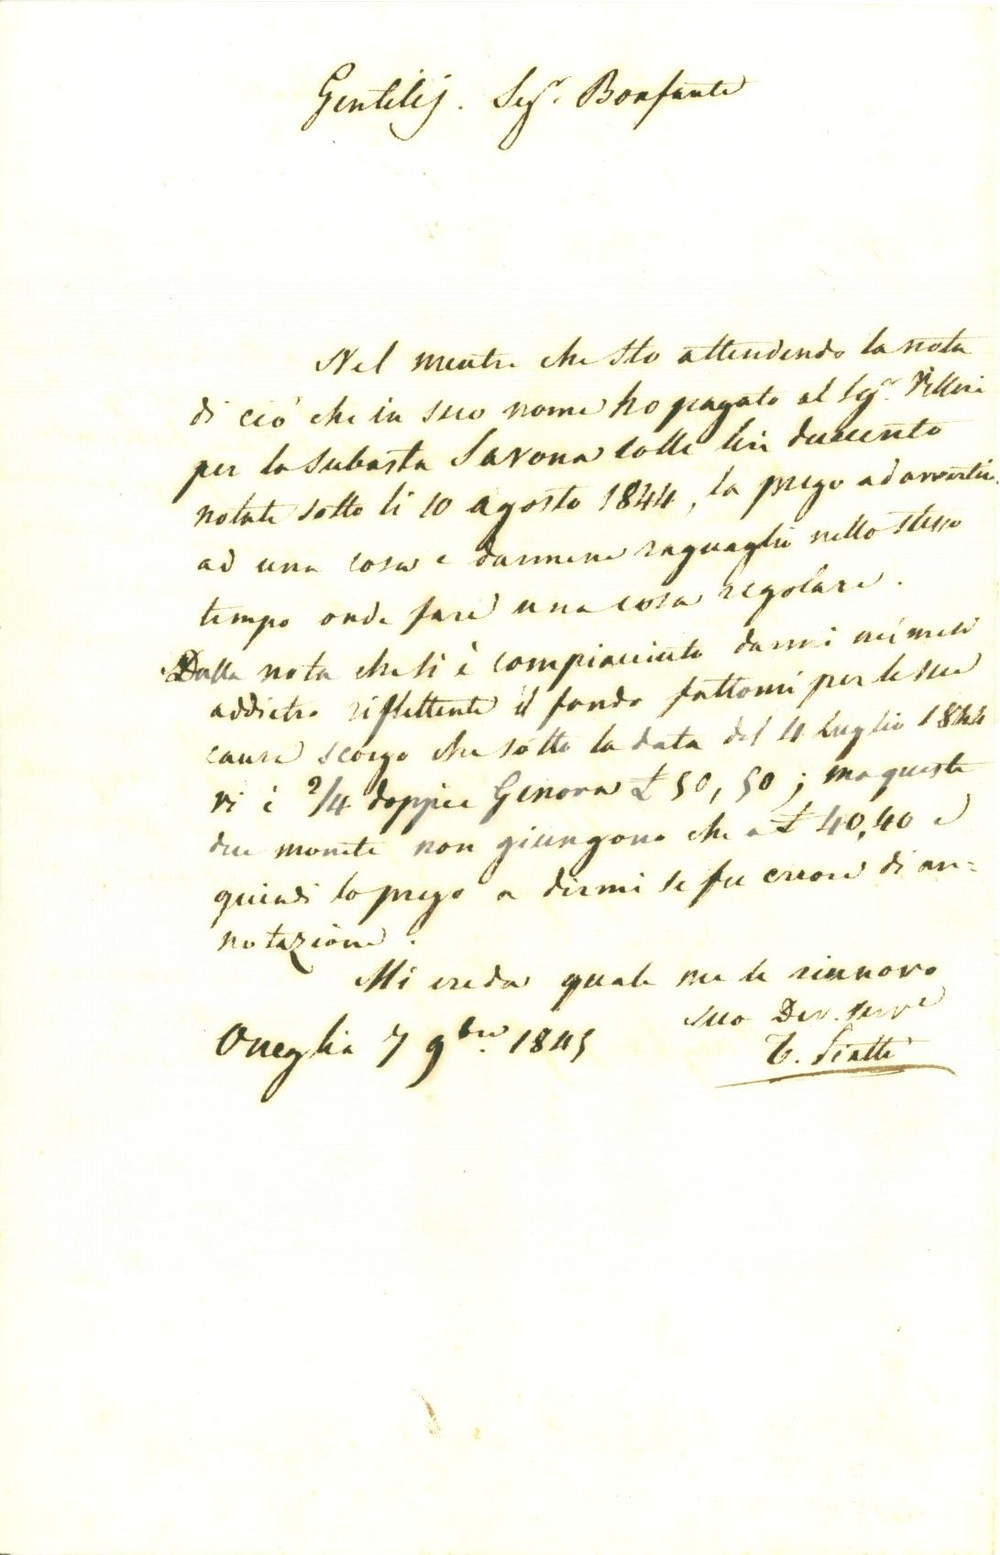 Gentilis. Sigr. Bonfante
Nel mentre che sto attendendo la nota
di ciò che in suo nome ho pagato al Sigr.
per la subasta Savona colle lire duecento
notate sotto li 10 agosto 1844, la prego ad avvertir
ad una cosa e darmene raguaglio nello stesso
tempo onde fare una cosa regolare.
Dalla nota che si è compiacciuto darmi nei mesi
addietro riflettente il fondo fattomi per le sue
cause scorgo che sotto la data del 4 luglio 1844
vi è 2/4 doppie Genova £ 50, 50; ma queste
due monete non giungono che a £ 40,40 e
quindi lo prego a dirmi se fu errore di an=
notazione.
Mi creda quale me le rinnovo
suo Dev. serve
Oneglia 7 9bre. 1845